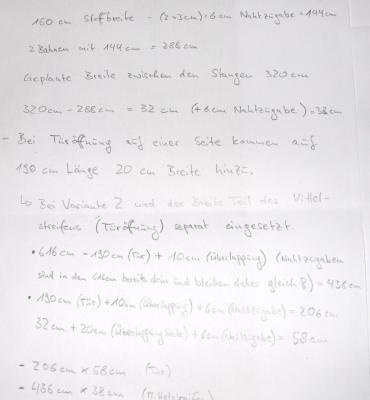 160 cm Stoffbreite - (2×3cm) 6cm Nahtzugabe = 144cm
2 Bahnen mit 144cm = 288cm
Geplante Breite zwischen den Stangen 320cm
320cm - 288cm = 32 cm (+6cm Nahtzugabe) = 38cm
- Bei Türöffnung auf einer Seite kommen auf
190 cm Länge 20 cm Breite hinzu.
↳ Bei Variante 2 wird der Breite Teil des Mittel-
streifens (Türöffnung) separat eingesetzt.
• 616cm - 190cm (Tür) + 10cm (Überlappung) (Nahtzugaben
sind in den 616cm bereits drin und bleiben daher gleich) = 436cm
• 190cm (Tür) + 10cm (Überlappung) + 6cm (Nahtzugabe) = 206cm
32cm + 20cm (Überlappung Seite) + 6cm (Nahtzugabe) = 58cm
- 206cm × 58cm (Tür)
- 436cm × 38cm (Mittelstreifen)